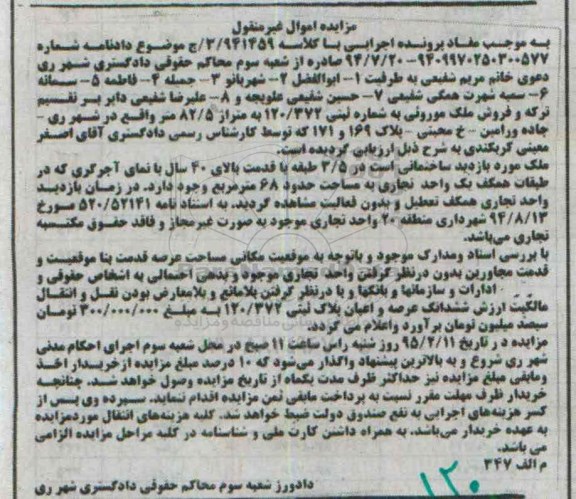 مزایده اموال غیرمنقول
به موجب مفاد پرونده اجرایی با کلاسه ۳/۹۴۱۴۵۹/ج موضوع دادنامه شماره
۹۴۰۹۹۷۰۲۵۰۳۰۰۵۷۷ - ۹۴/۷/۲۰ صادره از شعبه سوم محاکم حقوقی دادگستری شهر ری
دعوی خانم مریم شفیعی به طرفیت ۱- ابوالفضل ۲- شهربانو ۳- جمیله ۴- فاطمه ۵- سمانه
۶- سمیه شهرت همگی شفیعی ۷- حسین شفیعی علویجه و ۸- علیرضا شفیعی دایر بر تقسیم
ترکه و فروش ملک موروثی به شماره ثبتی ۱۲۰/۳۷۲ به متراژ ۸۲/۵ متر واقع در شهر ری -
جاده ورامین - خ محبتی - پلاک ۱۶۹ و ۱۷۱ که توسط کارشناس رسمی دادگستری آقای اصغر
معینی کریکندی به شرح ذیل ارزیابی گردیده است.
ملک مورد بازدید ساختمانی است در ۳/۵ طبقه با قدمت بالای ۴۰ سال با نمای آجرگری که در
طبقات همکف یک واحد تجاری به مساحت حدود ۶۸ مترمربع وجود دارد. در زمان بازدید
واحد تجاری همکف تعطیل و بدون فعالیت مشاهده گردید. به استناد نامه ۵۲۰/۵۲۱۴۱ مورخ
۹۴/۸/۱۳ شهرداری منطقه ۲۰ واحد تجاری موجود به صورت غیرمجاز و فاقد حقوق مکتسبه
تجاری می‌باشد.
با بررسی اسناد ومدارک موجود و باتوجه به موقعیت مکانی مساحت عرصه قدمت بنا موقعیت و
قدمت مجاورین بدون درنظر گرفتن واحد تجاری موجود و بدهی احتمالی به اشخاص حقوقی و
ادارات و سازمانها و بانکها و با درنظر گرفتن پلامانع و بلامعارض بودن نقل و انتقال
مالکیت ارزش ششدانگ عرصه و اعیان پلاک ثبتی ۱۲۰/۳۷۲ به مبلغ ۳۰۰/۰۰۰/۰۰۰ تومان
سیصد میلیون تومان برآورد واعلام می گردد.
مزایده در تاریخ ۹۵/۲/۱۱ روز شنبه راس ساعت ۱۱ صبح در محل شعبه سوم اجرای احکام مدنی
شهر ری شروع و به بالاترین پیشنهاد واگذار می‌شود که ۱۰ درصد مبلغ مزایده ازخریدار اخذ
ومابقی مبلغ مزایده نیز حداکثر ظرف مدت یکماه از تاریخ مزایده وصول خواهد شد. چنانچه
خریدار ظرف مهلت مقرر نسبت به پرداخت مابقی ثمن مزایده اقدام ننماید. سپرده وی پس از
کسر هزینه‌های اجرایی به نفع صندوق دولت ضبط خواهد شد. کلیه هزینه‌های انتقال موردمزایده
به عهده خریدار می‌باشد. به همراه داشتن کارت ملی و شناسنامه در کلیه مراحل مزایده الزامی
می باشد.
م الف ۳۴۷
دادورز شعبه سوم محاکم حقوقی دادگستری شهر ری
۱۲۰